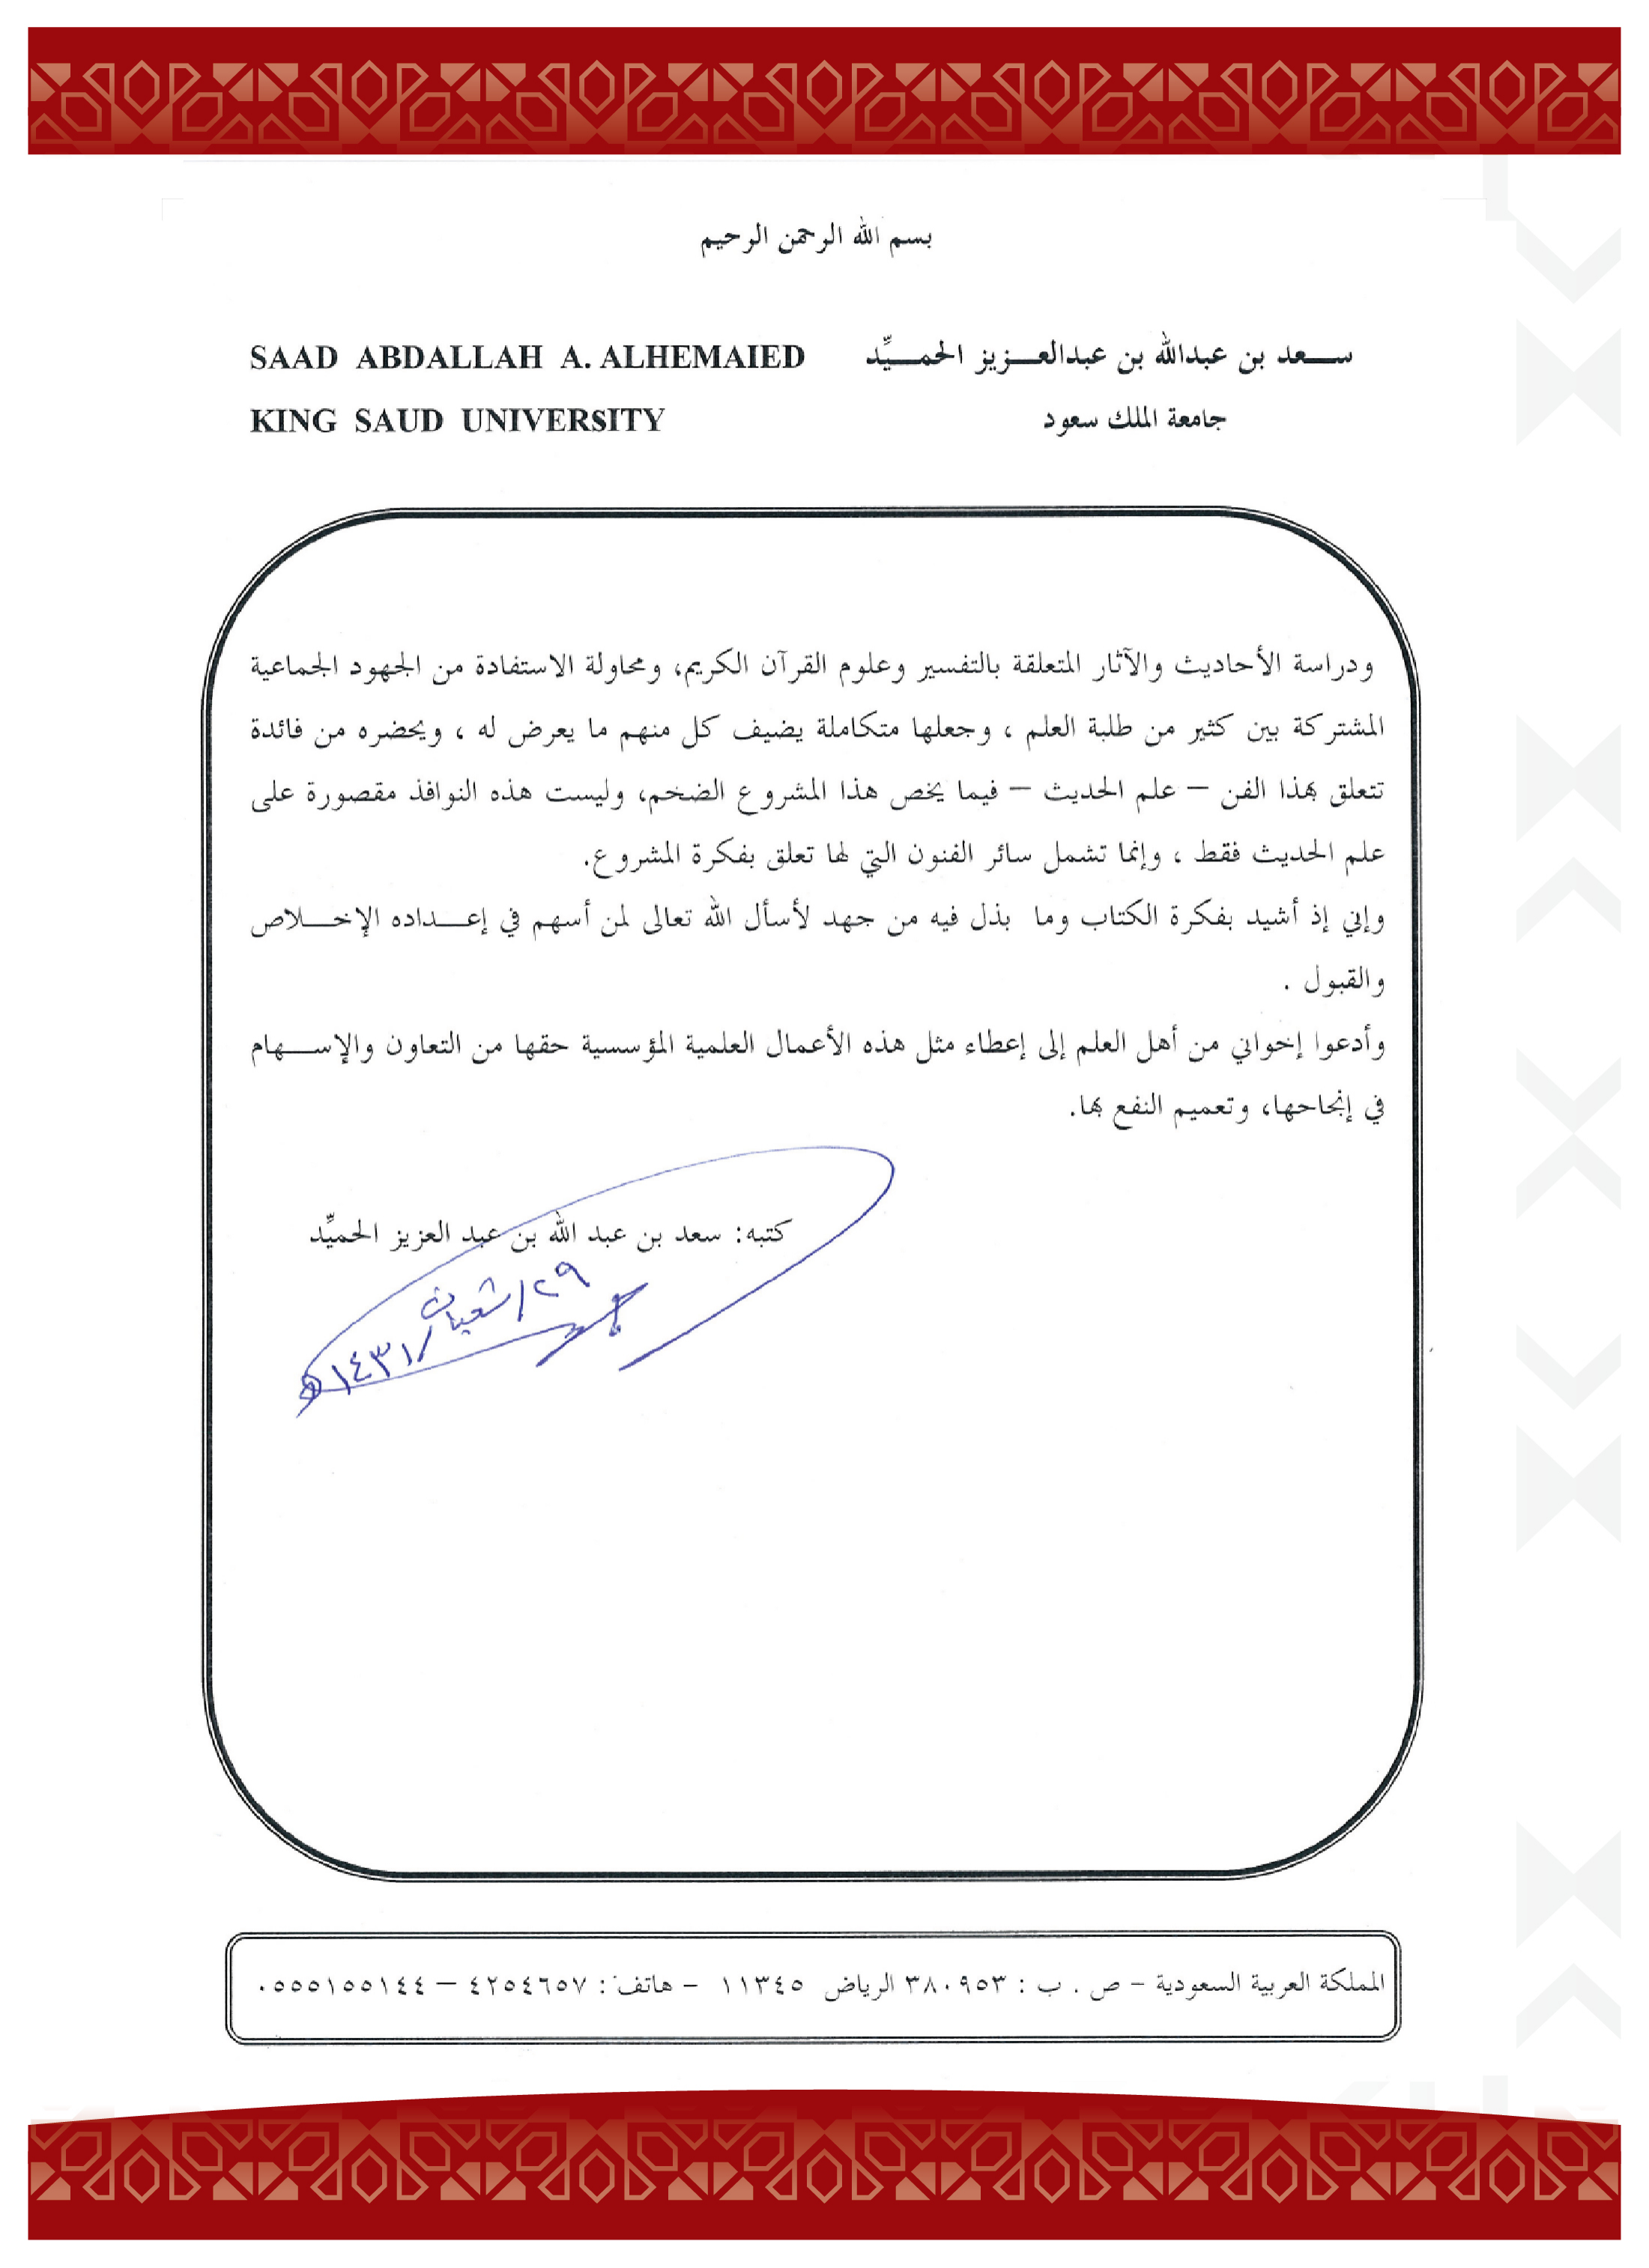 بسم الله الرحمن الرحيم
سعد بن عبدالله بن عبدالعزيز الحميِّد
SAAD ABDALLAH A. ALHEMAIED
جامعة الملك سعود
KING SAUD UNIVERSITY
ودراسة الأحاديث والآثار المتعلقة بالتفسير وعلوم القرآن الكريم، ومحاولة الاستفادة من الجهود الجماعية
المشتركة بين كثير من طلبة العلم ، وجعلها متكاملة يضيف كل منهم ما يعرض له ، ويحضره من فائدة
تتعلق بهذا الفن – علم الحديث – فيما يخص هذا المشروع الضخم، وليست هذه النوافذ مقصورة على
علم الحديث فقط ، وإنما تشمل سائر الفنون التي لها تعلق بفكرة المشروع.
وإني إذ أشيد بفكرة الكتاب وما بذل فيه من جهد لأسأل الله تعالى لمن أسهم في إعداده الإخلاص
والقبول .
وأدعوا إخواني من أهل العلم إلى إعطاء مثل هذه الأعمال العلمية المؤسسية حقها من التعاون والإسهام
في إنجاحها، وتعميم النفع بها.
كتبه: سعد بن عبد الله بن عبد العزيز الحميِّد
٢٩/شعبان/١٤٣١هـ
المملكة العربية السعودية – ص . ب : ٣٨٠٩٥٣ الرياض ١١٣٤٥ – هاتف : ٤٢٥٤٦٥٧ – ٠٥٥٥١٥٥١٤٤